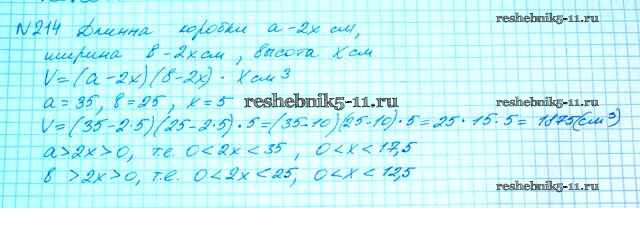 reshebnik5-11.ru
№214 Длинна коробки a-2x см,
ширина в-2x см, высота x см
V=(a-2x)(в-2x)·x см³
a=35, в=25, x=5 reshebnik5-11.ru
V=(35-2·5)(25-2·5)·5=(35-10)(25-10)·5=25·15·5=1875(см³)
a>2x>0, т.е. 0<2x<35, 0<x<17,5
в>2x>0, т.е. 0<2x<25, 0<x<12,5
reshebnik5-11.ru
reshebnik5-11.ru